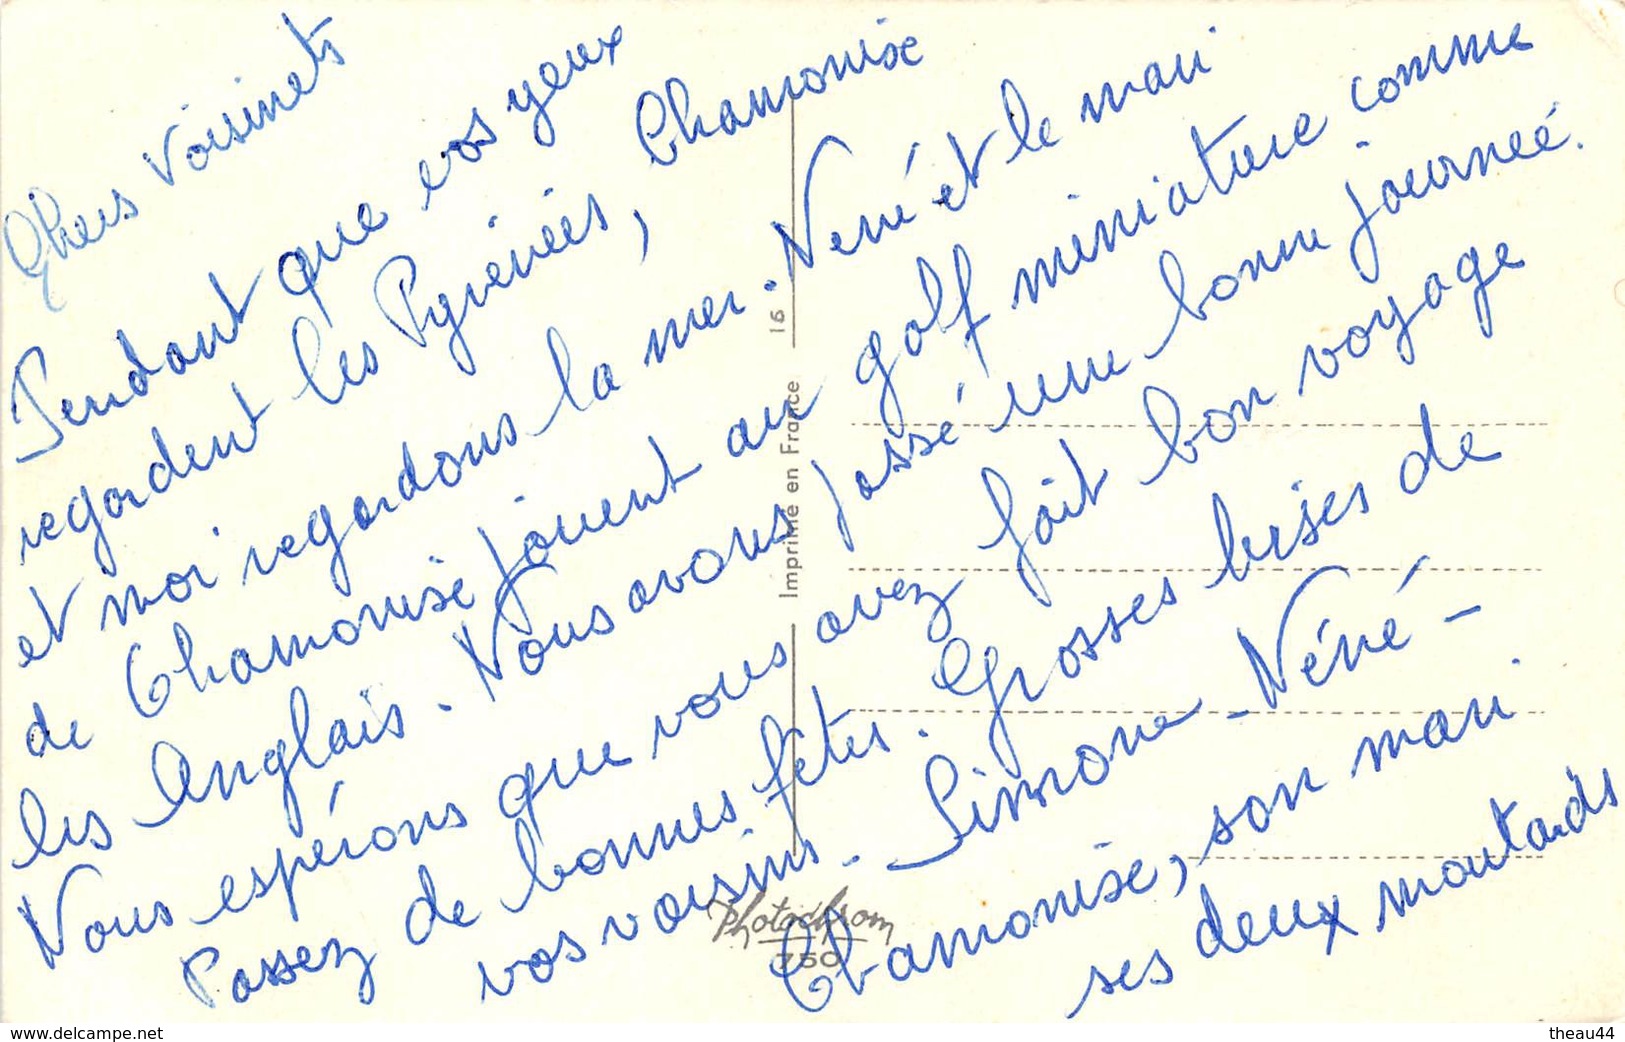 Chers Voisinets
Pendant que vos yeux
regardent les Pyrénées, Chamonixe
et moi regardons la mer. Néné et le mari
de Chamonixe jouent au golf miniature comme
les Anglais. Nous avons passé une bonne journée.
Nous espérons que vous avez fait bon voyage
Passez de bonnes fêtes. Grosses bises de
vos voisins. Simone - Néné -
Chamonixe, son mari
ses deux moutards
16
Imprimé en France
Photochrom
750
www.delcampe.net
theau44